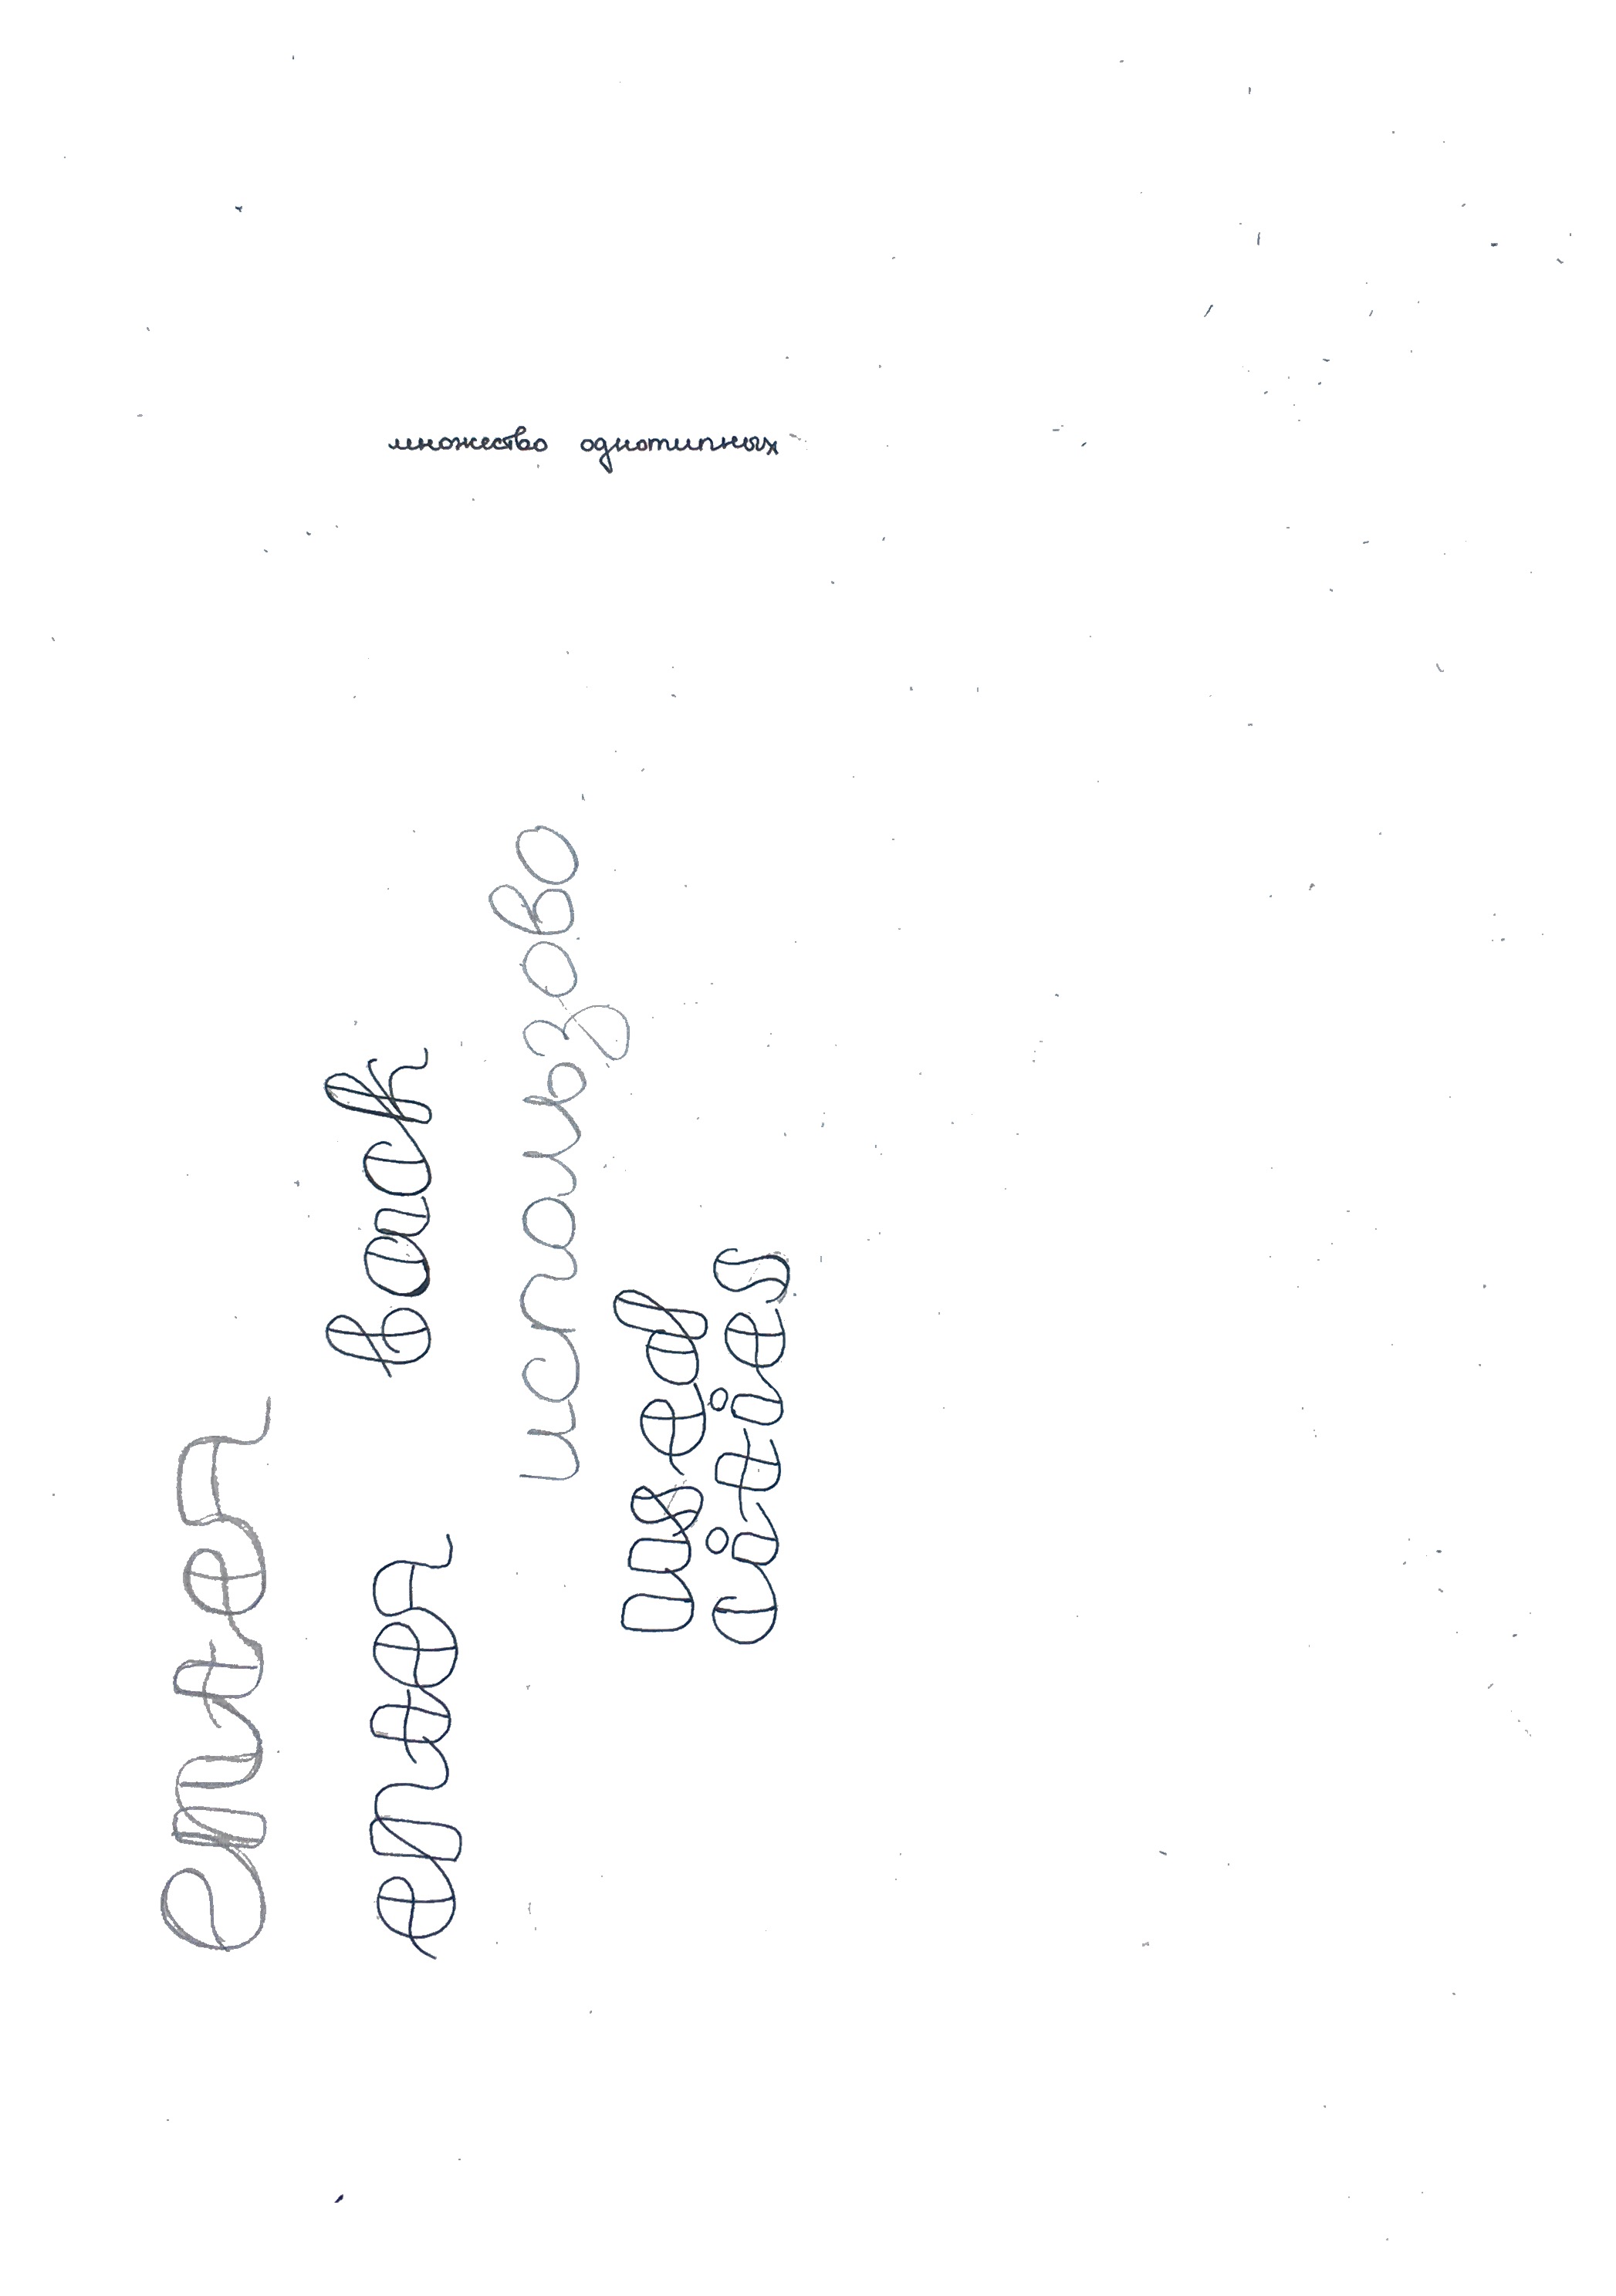 множество однотипных
enter
back
enter
использово
used
cities